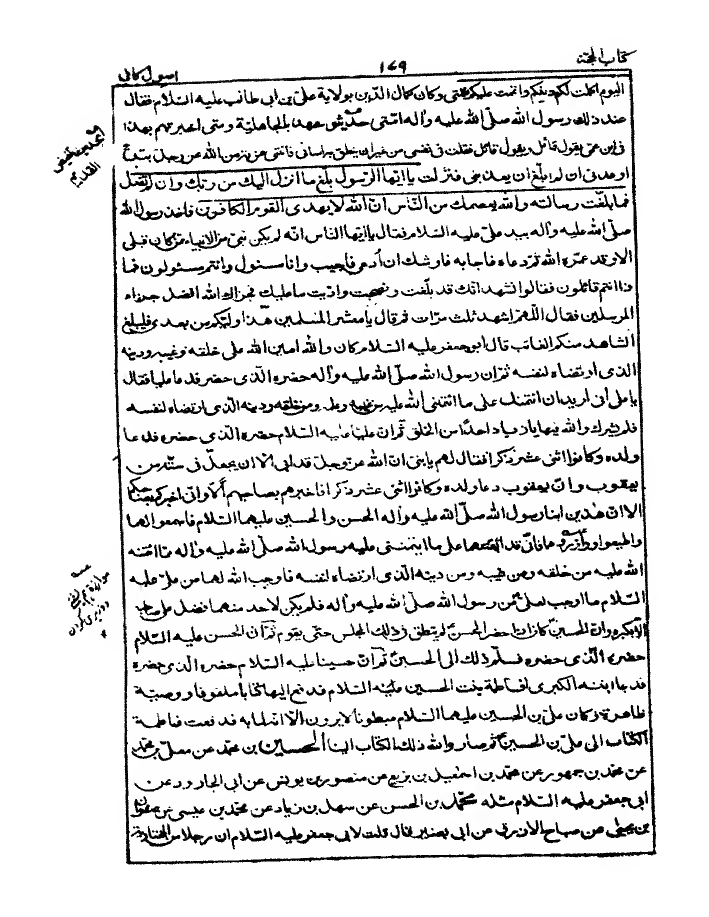 كتاب الحجة
١٧٩
اصول كافي
اليوم اكملت لكم دينكم واتممت عليكم نعمتي وكان كمال الدين بولاية علي بن ابي طالب عليه السلام فقال
عند ذلك رسول الله صلى الله عليه واله امتي حديثو عهد بالجاهلية ومتى اخبرتهم بهذا
في ابن عمي يقول قائل ويقول قائل فقلت في نفسي من غير ان ينطق به لساني فاتتني عزيمة من الله عز وجل بتلة
اوعدني ان لم ابلغ ان يعذبني فنزلت يا ايها الرسول بلغ ما انزل اليك من ربك وان لم تفعل
فما بلغت رسالته والله يعصمك من الناس ان الله لا يهدي القوم الكافرين فاخذ رسول الله
صلى الله عليه واله بيد علي عليه السلام فقال يا ايها الناس انه لم يكن نبي من الانبياء ممن كان قبلي
الا وقد عمره الله ثم دعاه فاجابه فاوشك ان ادعى فاجيب وانا مسئول وانتم مسئولون فما
ذا انتم قائلون فقالوا نشهد انك قد بلغت ونصحت واديت ما عليك فجزاك الله افضل جزاء
المرسلين فقال اللهم اشهد ثلث مرات ثم قال يا معشر المسلمين هذا وليكم من بعدي فليبلغ
الشاهد منكم الغائب قال ابو جعفر عليه السلام كان والله امين الله على خلقه وغيبه ودينه
الذي ارتضاه لنفسه ثم ان رسول الله صلى الله عليه واله حضره الذي حضر فدعا عليا فقال
يا علي اني اريد ان ائتمنك على ما ائتمنني الله عليه من غيبه وعلمه ومن خلقه ومن دينه الذي ارتضاه لنفسه
فلم يشرك والله فيها يا زياد احدا من الخلق ثم ان عليا عليه السلام حضره الذي حضره فدعا
ولده وكانوا اثني عشر ذكرا فقال لهم يا بني ان الله عز وجل قد ابى الا ان يجعل في سنة من
يعقوب وان يعقوب دعا ولده وكانوا اثني عشر ذكرا فاخبرهم بصاحبهم الا واني اخبركم بصاحبكم
الا ان هذين ابنا رسول الله صلى الله عليه واله الحسن والحسين عليهما السلام فاسمعوا لهما
واطيعوا ووازروهما فاني قد ائتمنتهما على ما ائتمنني عليه رسول الله صلى الله عليه واله مما ائتمنه
الله عليه من خلقه ومن غيبه ومن دينه الذي ارتضاه لنفسه فاوجب الله لهما من علي عليه
السلام ما اوجب لعلي من رسول الله صلى الله عليه واله فلم يكن لاحد منهما فضل على صاحبه
الا بكبره وان الحسين كان اذا حضر الحسن لم ينطق في ذلك المجلس حتى يقوم ثم ان الحسن عليه السلام
حضره الذي حضره فسلم ذلك الى الحسين ثم ان حسينا عليه السلام حضره الذي حضره
فدعا ابنته الكبرى فاطمة بنت الحسين عليه السلام فدفع اليها كتابا ملفوفا ووصية
ظاهرة وكان علي بن الحسين عليهما السلام مبطونا لا يرون الا انه لما به فدفعت فاطمة
الكتاب الى علي بن الحسين ثم صار والله ذلك الكتاب الينا الحسين بن محمد عن معلى بن محمد
عن محمد بن جمهور عن محمد بن اسمعيل بن بزيع عن منصور بن يونس عن ابي الجارود عن
ابي جعفر عليه السلام مثله محمد بن الحسن عن سهل بن زياد عن محمد بن عيسى عن صفوان
بن يحيى عن صباح الازرق عن ابي بصير قال قلت لابي جعفر عليه السلام ان رجلا من المختارية